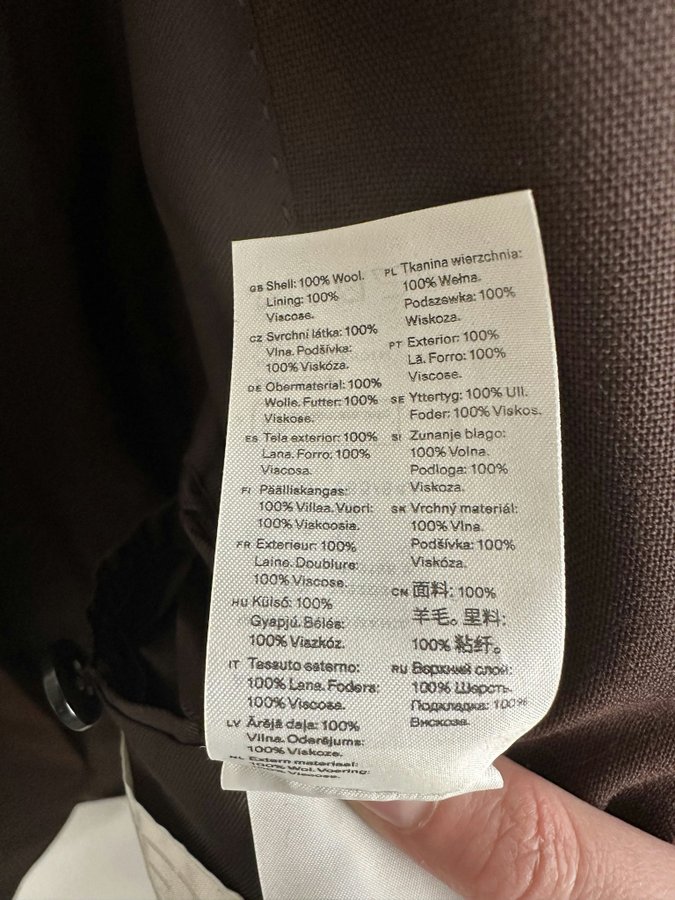 GB Shell: 100% Wool.
Lining: 100%
Viscose.
CZ Svrchní látka: 100%
Vlna. Podšívka:
100% Viskóza.
DE Obermaterial: 100%
Wolle. Futter: 100%
Viskose.
ES Tela exterior: 100%
Lana. Forro: 100%
Viscosa.
FI Päälliskangas:
100% Villaa. Vuori:
100% Viskoosia.
FR Exterieur: 100%
Laine. Doublure:
100% Viscose.
HU Külső: 100%
Gyapjú. Bélés:
100% Viszkóz.
IT Tessuto esterno:
100% Lana. Fodera:
100% Viscosa.
LV Ārējā daļa: 100%
Vilna. Oderējums:
100% Viskoze.
NL Extern materiaal:
100% Wol. Voering:
100% Viscose.
PL Tkanina wierzchnia:
100% Wełna.
Podszewka: 100%
Wiskoza.
PT Exterior: 100%
Lã. Forro: 100%
Viscose.
SE Yttertyg: 100% Ull.
Foder: 100% Viskos.
SI Zunanje blago:
100% Volna.
Podloga: 100%
Viskoza.
SK Vrchný materiál:
100% Vlna.
Podšívka: 100%
Viskóza.
CN 面料: 100%
羊毛。里料:
100% 粘纤。
RU Верхний слой:
100% Шерсть.
Подкладка: 100%
Вискоза.